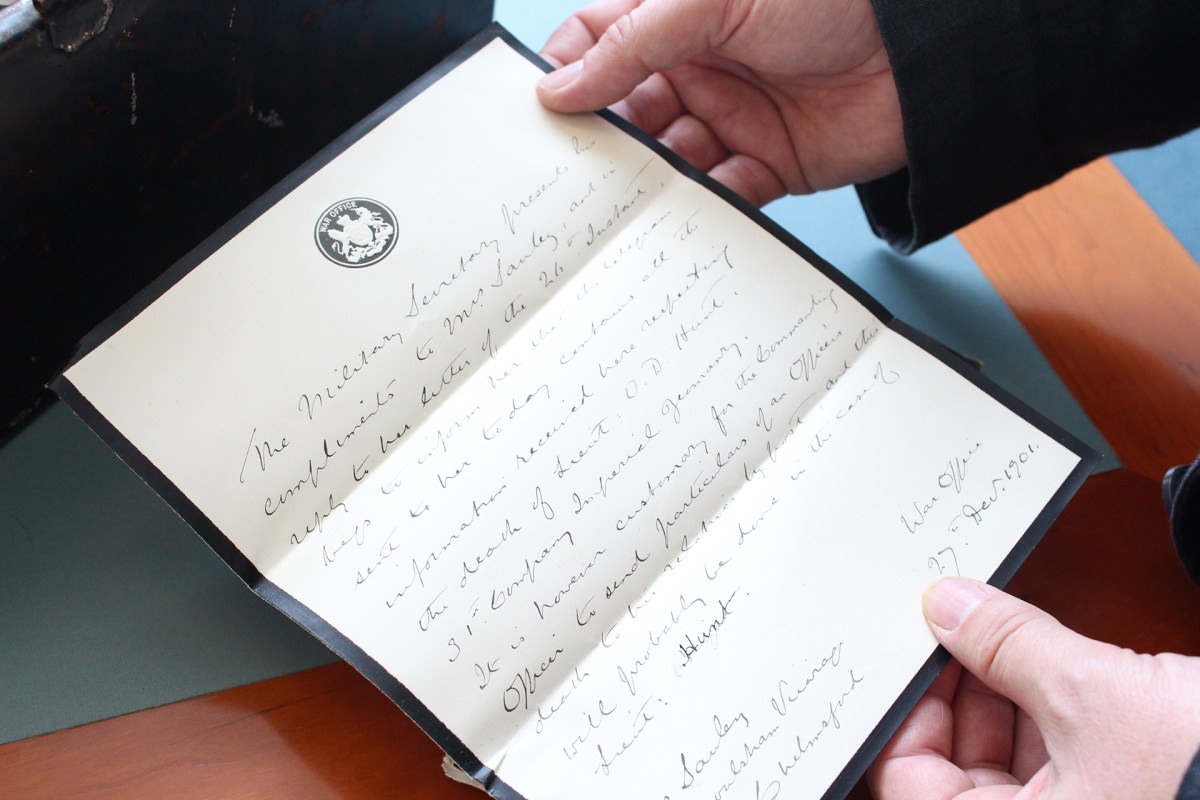 WAR OFFICE
The Military Secretary presents his
compliments to Mrs Saulez, and in
reply to her letter of the 26th Instant,
begs to inform her that the telegram
sent to her today contains all the
information received here respecting
the death of Lieut. O.D. Hunt.
31st Company Imperial Yeomanry.
It is however customary for the Commanding
Officer to send particulars of an Officer's
death to his relatives by post and this
will probably be done in the case of
Lieut: Hunt.
War Office
27th Decr. 1901.
Saulez
Vicarage
Chelmsford